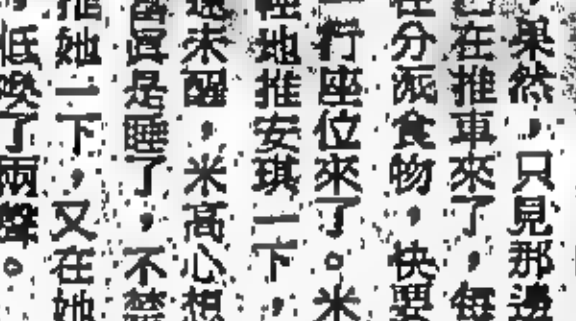 果然，只見那邊
在推車來了，每
在分派食物，快要
行座位來了。米
地推安琪一下，
未醒，米高心想
當真是睡了，不禁
推她一下，又在她
低喚了兩聲。